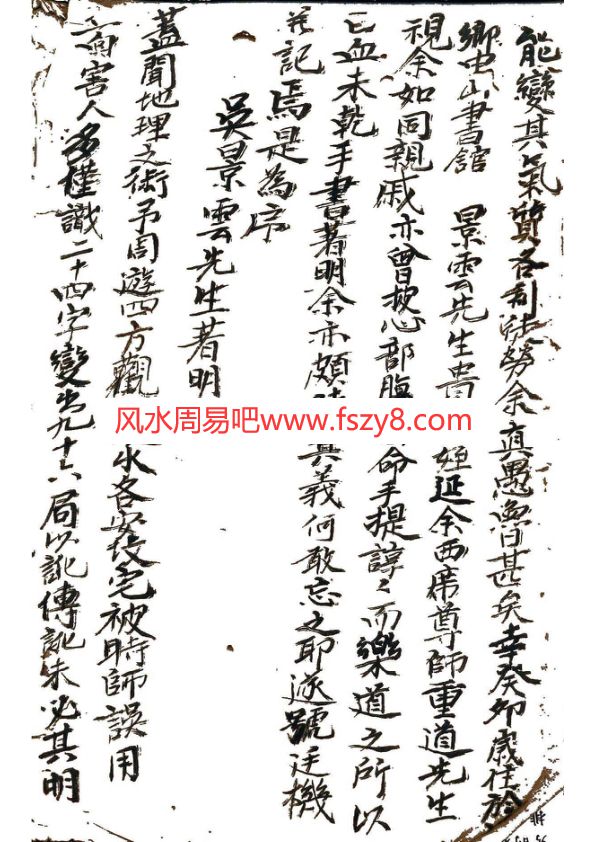 能變其氣質各司徒勞余真愚魯甚矣幸癸卯歲住於
鄉虫山書館 景雲先生書姪延余西席尊師重道先生
視余如同親戚亦曾披心部腹命手提諄々而樂道之所以
血未乾手書著明余亦頗其義何敢忘之耶遂號廷機
記焉是為序
吳景雲先生著明
蓋聞地理之術予周遊四方觀水各安役宅被時師誤用
害人多僅識二十四字變出九十六局以訛傳訛未必其明
风水周易吧www.fszy8.com